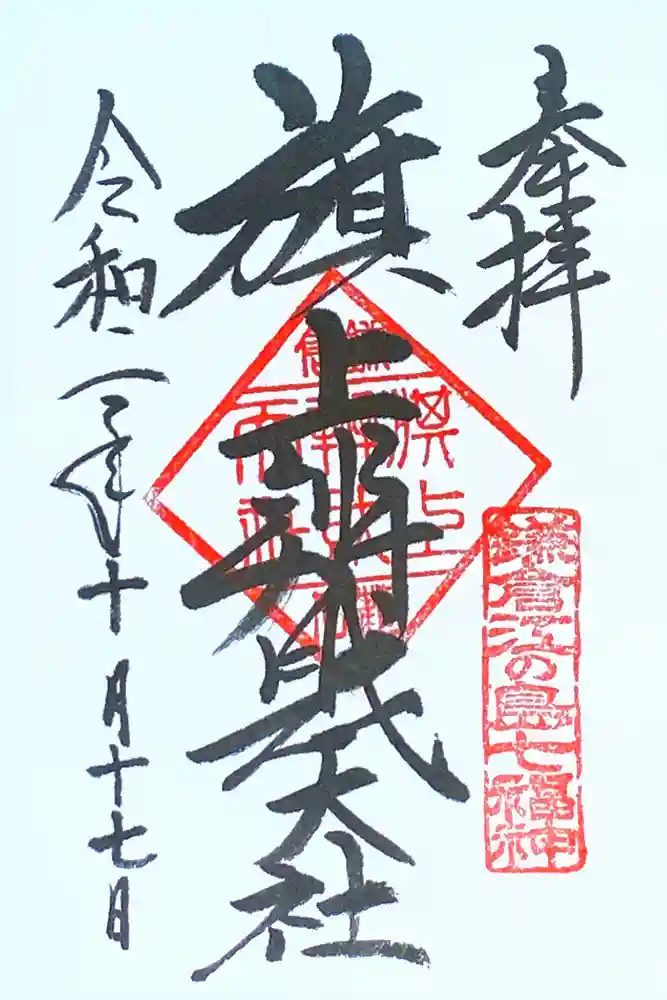 奉拝
鎌倉江の島七福神
旗上辨財天社
鎌倉
旗上
辨財
天社
令和二年十月十七日